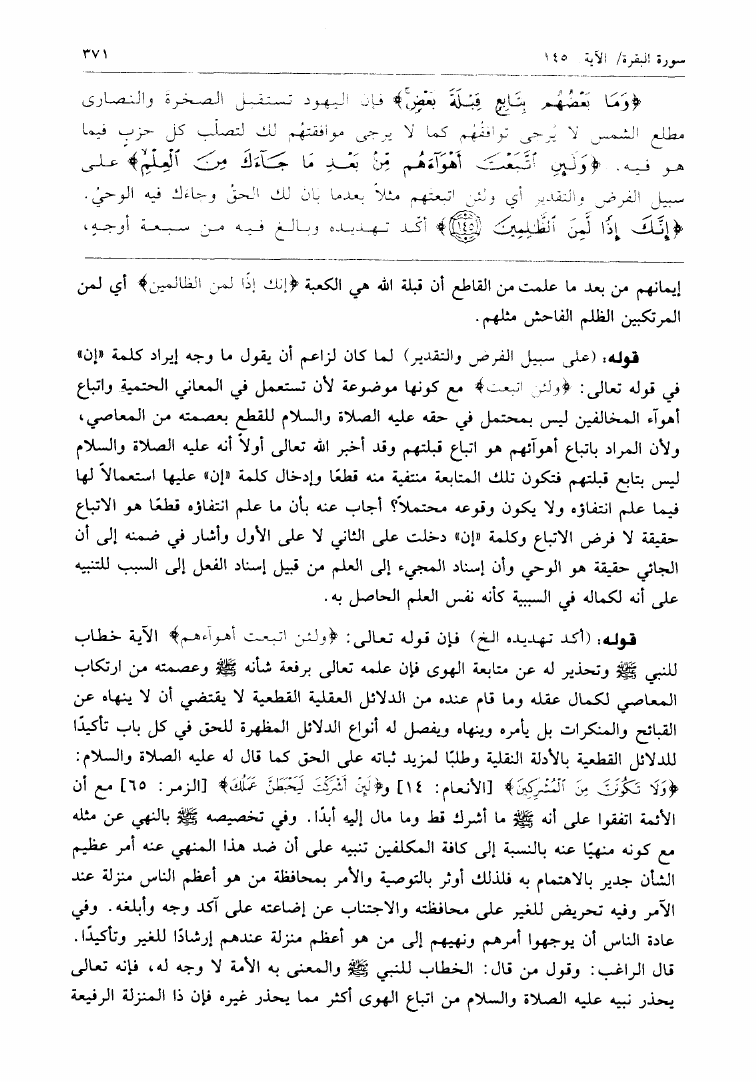 سورة البقرة/ الآية ١٤٥
٣٧١
﴿وَمَا بَعْضُهُم بِتَابِعٍ قِبْلَةَ بَعْضٍ﴾ فإن اليهود تستقبل الصخرة والنصارى
مطلع الشمس لا يُرجى توافقُهم كما لا يرجى موافقتهُم لك لتصلّب كل حزبٍ فيما
هو فيه. ﴿وَلَئِنِ اتَّبَعْتَ أَهْوَاءَهُم مِّنْ بَعْدِ مَا جَاءَكَ مِنَ الْعِلْمِ﴾ على
سبيل الفرض والتقدير أي ولئن اتبعتهم مثلاً بعدما بان لك الحقُ وجاءك فيه الوحيُ.
﴿إِنَّكَ إِذًا لَّمِنَ الظَّالِمِينَ (١٤٥)﴾ أكد تهديده وبالغ فيه من سبعة أوجهٍ،
إيمانهم من بعد ما علمت من القاطع أن قبلة الله هي الكعبة ﴿إنك إذًا لمن الظالمين﴾ أي لمن
المرتكبين الظلم الفاحش مثلهم.
قوله: (على سبيل الفرض والتقدير) لما كان لزاعم أن يقول ما وجه إيراد كلمة «إن»
في قوله تعالى: ﴿ولئن اتبعت﴾ مع كونها موضوعة لأن تستعمل في المعاني الحتمية واتباع
أهوآء المخالفين ليس بمحتمل في حقه عليه الصلاة والسلام للقطع بعصمته من المعاصي،
ولأن المراد باتباع أهوآئهم هو اتباع قبلتهم وقد أخبر الله تعالى أولاً أنه عليه الصلاة والسلام
ليس بتابع قبلتهم فتكون تلك المتابعة منتفية منه قطعًا وإدخال كلمة «إن» عليها استعمالاً لها
فيما علم انتفاؤه ولا يكون وقوعه محتملاً؟ أجاب عنه بأن ما علم انتفاؤه قطعًا هو الاتباع
حقيقة لا فرض الاتباع وكلمة «إن» دخلت على الثاني لا على الأول وأشار في ضمنه إلى أن
الجائي حقيقة هو الوحي وأن إسناد المجيء إلى العلم من قبيل إسناد الفعل إلى السبب للتنبيه
على أنه لكماله في السببية كأنه نفس العلم الحاصل به.
قوله: (أكد تهديده الخ) فإن قوله تعالى: ﴿ولئن اتبعت أهواءهم﴾ الآية خطاب
للنبي ﷺ وتحذير له عن متابعة الهوى فإن علمه تعالى برفعة شأنه ﷺ وعصمته من ارتكاب
المعاصي لكمال عقله وما قام عنده من الدلائل العقلية القطعية لا يقتضي أن لا ينهاه عن
القبائح والمنكرات بل يأمره وينهاه ويفصل له أنواع الدلائل المظهرة للحق في كل باب تأكيدًا
للدلائل القطعية بالأدلة النقلية وطلبًا لمزيد ثباته على الحق كما قال له عليه الصلاة والسلام:
﴿وَلَا تَكُونَنَّ مِنَ الْمُشْرِكِينَ﴾ [الأنعام: ١٤] و﴿لَئِنْ أَشْرَكْتَ لَيَحْبَطَنَّ عَمَلُكَ﴾ [الزمر: ٦٥] مع أن
الأئمة اتفقوا على أنه ﷺ ما أشرك قط وما مال إليه أبدًا. وفي تخصيصه ﷺ بالنهي عن مثله
مع كونه منهيًا عنه بالنسبة إلى كافة المكلفين تنبيه على أن ضد هذا المنهي عنه أمر عظيم
الشأن جدير بالاهتمام به فلذلك أوثر بالتوصية والأمر بمحافظة من هو أعظم الناس منزلة عند
الآمر وفيه تحريض للغير على محافظته والاجتناب عن إضاعته على آكد وجه وأبلغه. وفي
عادة الناس أن يوجهوا أمرهم ونهيهم إلى من هو أعظم منزلة عندهم إرشادًا للغير وتأكيدًا.
قال الراغب: وقول من قال: الخطاب للنبي ﷺ والمعنى به الأمة لا وجه له، فإنه تعالى
يحذر نبيه عليه الصلاة والسلام من اتباع الهوى أكثر مما يحذر غيره فإن ذا المنزلة الرفيعة